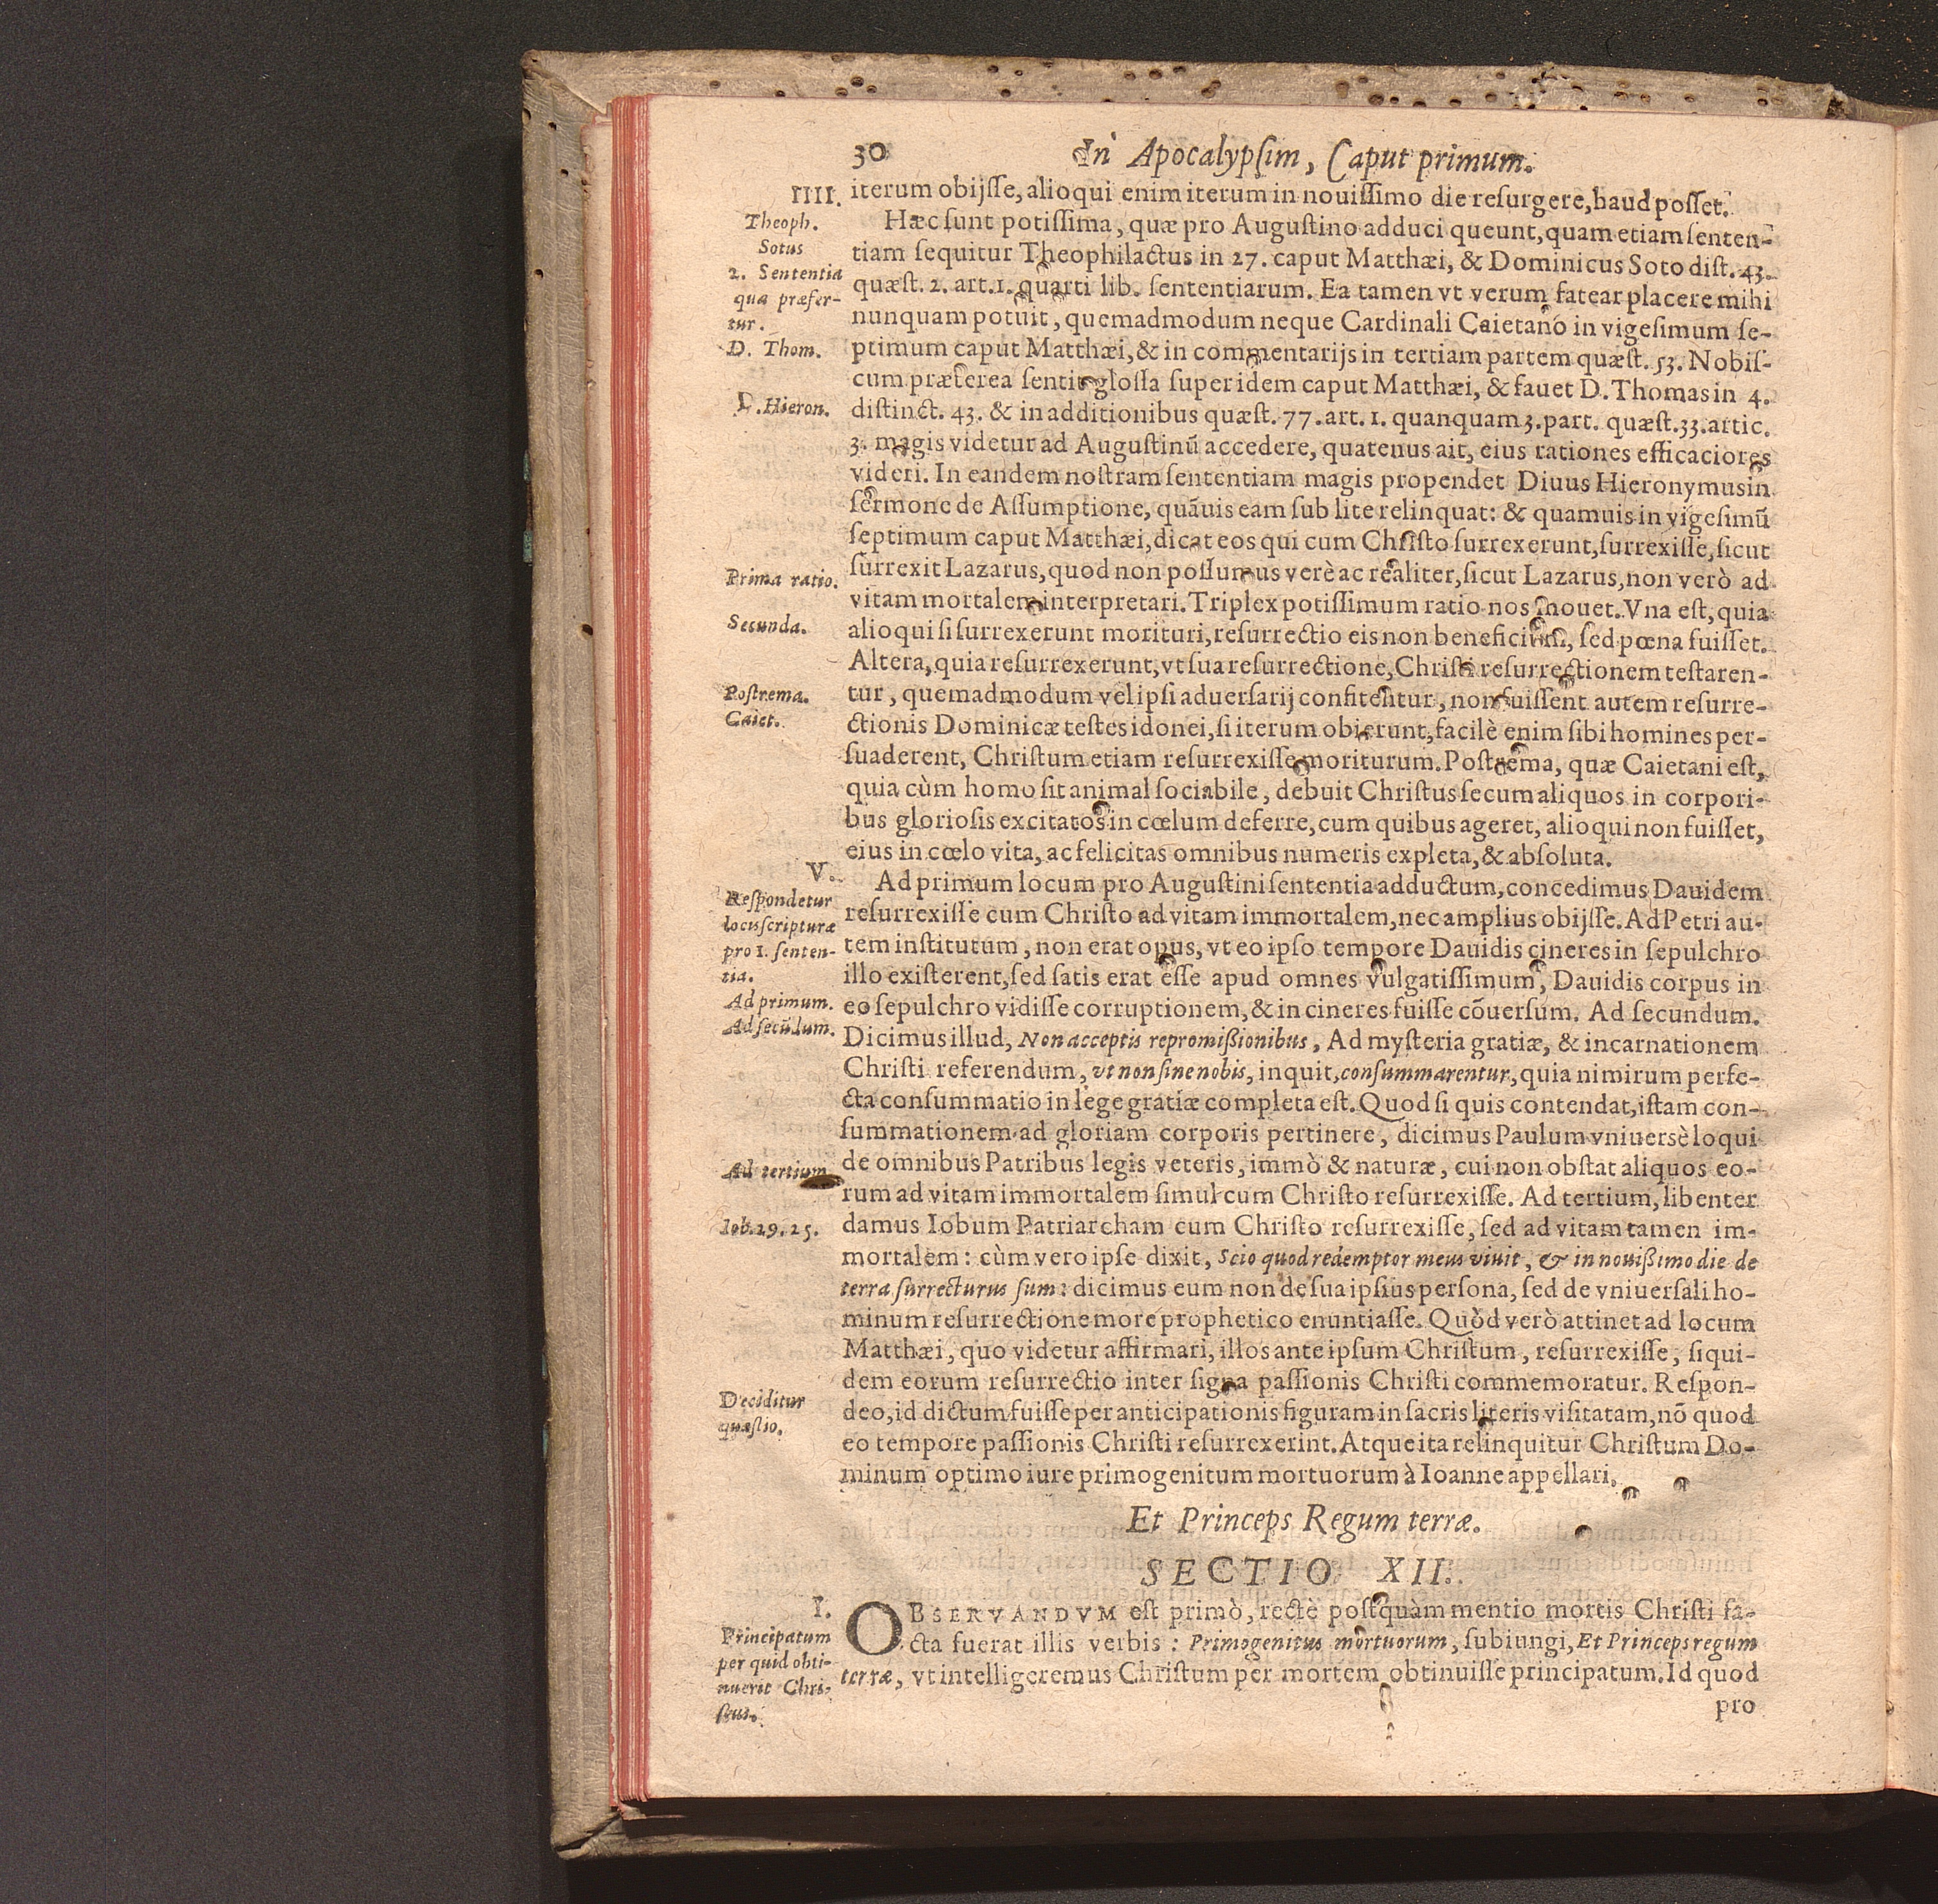 30 In Apocalypsim, Caput primum.
IIII. iterum obijſſe, alioqui enim iterum in nouiſſimo die reſurgere, haud poſſet.
Theoph. Hæc ſunt potiſſima, quæ pro Auguſtino adduci queunt, quam etiam ſenten-
Sotus tiam ſequitur Theophilactus in 27. caput Matthæi, & Dominicus Soto diſt. 43.
2. Sententia quæſt. 2. art. 1. quarti lib. ſententiarum. Ea tamen vt verum fatear placere mihi
qua præfer- nunquam potuit, quemadmodum neque Cardinali Caietano in vigeſimum ſe-
tur.
D. Thom. ptimum caput Matthæi, & in commentarijs in tertiam partem quæſt. 53. Nobiſ-
cum præterea ſentit gloſſa ſuper idem caput Matthæi, & fauet D. Thomas in 4.
D. Hieron. diſtinct. 43. & in additionibus quæſt. 77. art. 1. quanquam 3. part. quæſt. 33. artic.
3. magis videtur ad Auguſtinũ accedere, quatenus ait, eius rationes efficaciores
videri. In eandem noſtram ſententiam magis propendet Diuus Hieronymus in
ſermone de Aſſumptione, quãuis eam ſub lite relinquat: & quamuis in vigeſimũ
ſeptimum caput Matthæi, dicat eos qui cum Chriſto ſurrexerunt, ſurrexiſſe, ſicut
Prima ratio. ſurrexit Lazarus, quod non poſſumus verè ac realiter, ſicut Lazarus, non verò ad
vitam mortalem interpretari. Triplex potiſſimum ratio nos mouet. Vna eſt, quia
Secunda. alioqui ſi ſurrexerunt morituri, reſurrectio eis non beneficium, ſed pœna fuiſſet.
Altera, quia reſurrexerunt, vt ſua reſurrectione, Chriſti reſurrectionem teſtaren-
Poſtrema. tur, quemadmodum vel ipſi aduerſarij confitentur, non fuiſſent autem reſurre-
Caiet. ctionis Dominicæ teſtes idonei, ſi iterum obierunt, facilè enim ſibi homines per-
ſuaderent, Chriſtum etiam reſurrexiſſe moriturum. Poſtrema, quæ Caietani eſt,
quia cùm homo ſit animal ſociabile, debuit Chriſtus ſecum aliquos in corpori-
bus glorioſis excitatos in cœlum deferre, cum quibus ageret, alioqui non fuiſſet,
eius in cœlo vita, ac felicitas omnibus numeris expleta, & abſoluta.
V. Ad primum locum pro Auguſtini ſententia adductum, concedimus Dauidem
Reſpondetur reſurrexiſſe cum Chriſto ad vitam immortalem, nec amplius obijſſe. Ad Petri au-
locis ſcripturæ
pro 1. ſenten- tem inſtitutum, non erat opus, vt eo ipſo tempore Dauidis cineres in ſepulchro
tia. illo exiſterent, ſed ſatis erat eſſe apud omnes vulgatiſſimum, Dauidis corpus in
Ad primum. eo ſepulchro vidiſſe corruptionem, & in cineres fuiſſe cõuerſum. Ad ſecundum.
Ad ſecũdum. Dicimus illud, Non acceptis repromiſſionibus, Ad myſteria gratiæ, & incarnationem
Chriſti referendum, vt non ſine nobis, inquit, conſummarentur, quia nimirum perfe-
cta conſummatio in lege gratiæ completa eſt. Quod ſi quis contendat, iſtam con-
ſummationem ad gloriam corporis pertinere, dicimus Paulum vniuersè loqui
Ad tertium de omnibus Patribus legis veteris, immò & naturæ, cui non obſtat aliquos eo-
rum ad vitam immortalem ſimul cum Chriſto reſurrexiſſe. Ad tertium, libenter
Iob. 19. 25. damus Iobum Patriarcham cum Chriſto reſurrexiſſe, ſed ad vitam tamen im-
mortalem: cùm vero ipſe dixit, Scio quod redemptor meus viuit, & in nouiſſimo die de
terra ſurrecturus ſum: dicimus eum non de ſua ipſius perſona, ſed de vniuerſali ho-
minum reſurrectione more prophetico enuntiaſſe. Quòd verò attinet ad locum
Matthæi, quo videtur affirmari, illos ante ipſum Chriſtum, reſurrexiſſe, ſiqui-
dem eorum reſurrectio inter ſigna paſſionis Chriſti commemoratur. Reſpon-
Deciditur deo, id dictum fuiſſe per anticipationis figuram in ſacris literis viſitatam, nõ quod
quæſtio. eo tempore paſſionis Chriſti reſurrexerint. Atque ita relinquitur Chriſtum Do-
minum optimo iure primogenitum mortuorum à Ioanne appellari.
Et Princeps Regum terræ.
SECTIO XII.
I. OBSERVANDVM eſt primò, rectè poſtquàm mentio mortis Chriſti fa-
Principatum cta fuerat illis verbis: Primogenitus mortuorum, ſubiungi, Et Princeps regum
per quid obti-
nuerit Chri- terræ, vt intelligeremus Chriſtum per mortem obtinuiſſe principatum. Id quod
ſtus. pro